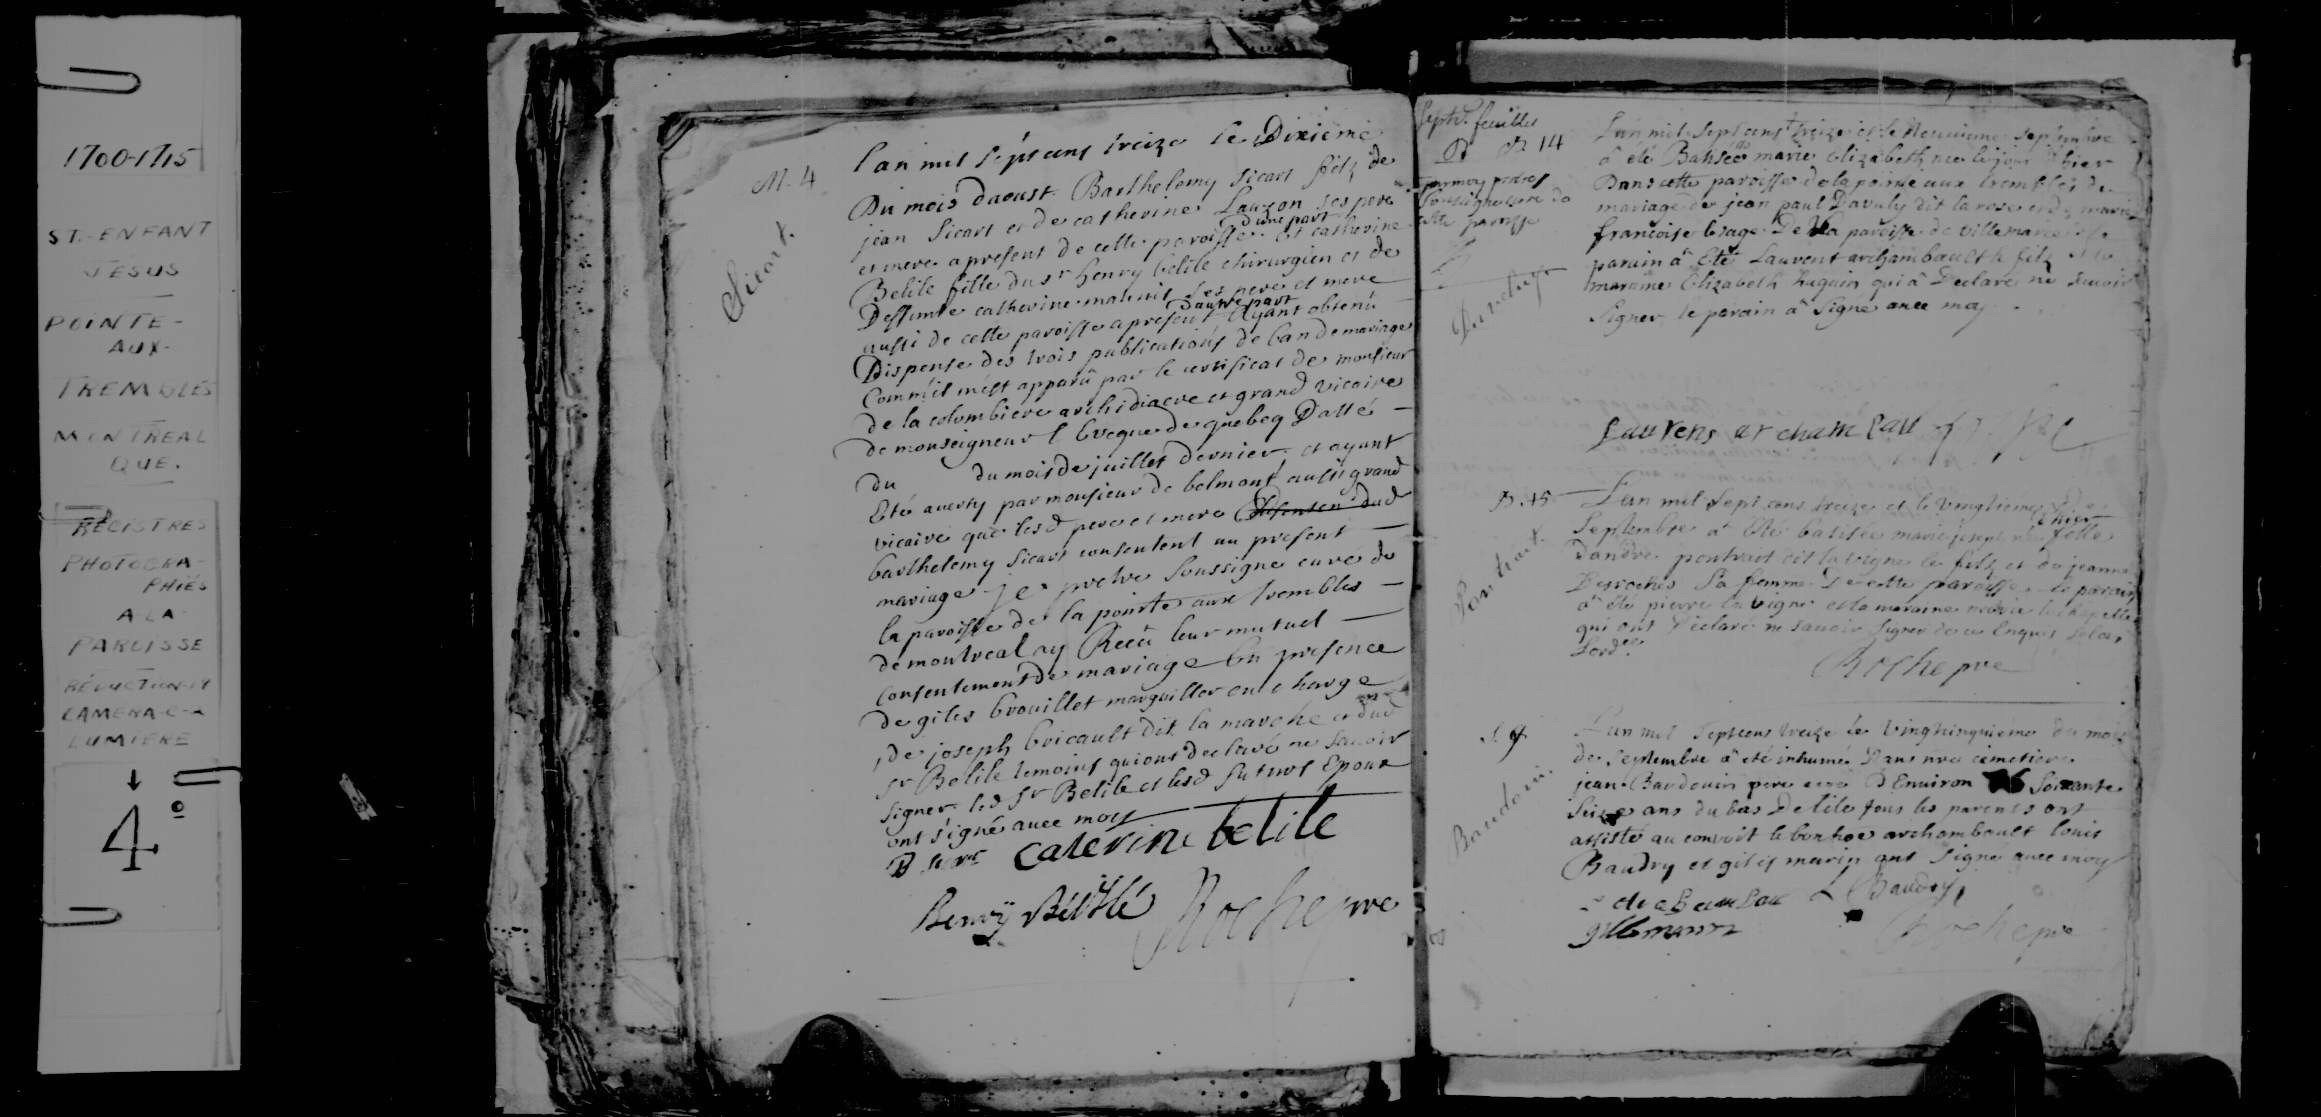 1700-1715
ST.-ENFANT
JÉSUS
POINTE-
AUX-
TREMBLES
MONTREAL
QUE.
REGISTRES
PHOTOGRA-
PHIÉS
A LA
PAROISSE
RÉDUCTION-14
CAMERA-C-2
LUMIÈRE
4º
M. 4
Sicart.
l'an mil sept cens treize le Dixieme
Du mois daoust Barthelemy Sicart fils de
jean Sicart et de catherine Lauzon ses pere
et mere a present de cette paroisse d'une part et catherine
Belile fille du sr henry belile chirurgien et de
Deffunte catherine ses pere et mere
aussi de cette paroisse a present D'autre part Ayant obtenû
Dispense des trois publications de ban de mariage
Comm'il m'est apparû par le certificat de monsieur
de la colombiere archidiacre et grand vicaire
de monseigneur l'Eveque de quebeq Datté
du du mois de juillet dernier et ayant
Eté averty par monsieur de belmont aussi grand
vicaire que lesd pere et mere dud
barthelemy Sicart consentent au present
mariage je pretre soussigne curé de
la paroisse de la pointe aux trembles
de montreal ay Receû leur mutuel
Consentement de mariage En presence
de giles brouillet marguiller en charge
de joseph bricault dit la marche et dud
sr Belile temoins qui ont declaré ne savoir
signer led sr Belile et lesd futurs Epoux
ont signé avec moy
B sicart Caterine belile
Henry Bélisle Roche pre
Septbre feuillet
B. 14
par moy pretre
soussigné curé de
cette paroisse
L'an mil sept cens treize et le Neuvieme septembre
à été Batisée marie elizabeth née le jour d'hier
Dans cette paroisse de la pointe aux trembles du
mariage de jean paul Davuly dit la rose et de marie
francoise lesage De la paroisse de villemarie le
parain à Eté Laurent archambault le fils et la
maraine Elizabeth huguin qui à Declaré ne savoir
signer le parain à signé avec moy
Laurens archambau
B. 15
Pontrait.
L'an mil sept cens treize et le vingtieme
Septembre à Eté batisée marie joseph née d'hier fille
d'andré pontrait dit la vigne le fils et de jeanne
Desroches sa femme De cette paroisse le parain
à été pierre la vigne et la maraine marie la chapelle
qui ont Declaré ne savoir signer de ce Enquis selon
l'ord.
Roche pre
S. 9.
Baudoin.
L'an mil sept cens treize le vingtcinquieme du mois
de Septembre à eté inhumé Dans nre cimetiere
jean Baudouin pere agé D'Environ Soixante
Seize ans du bas De l'ile tous les parents ont
assisté au convoit le bonhoe archambault louis
Baudry et giles marin ont signé avec moy
L Baudry
gille marin
Roche pre